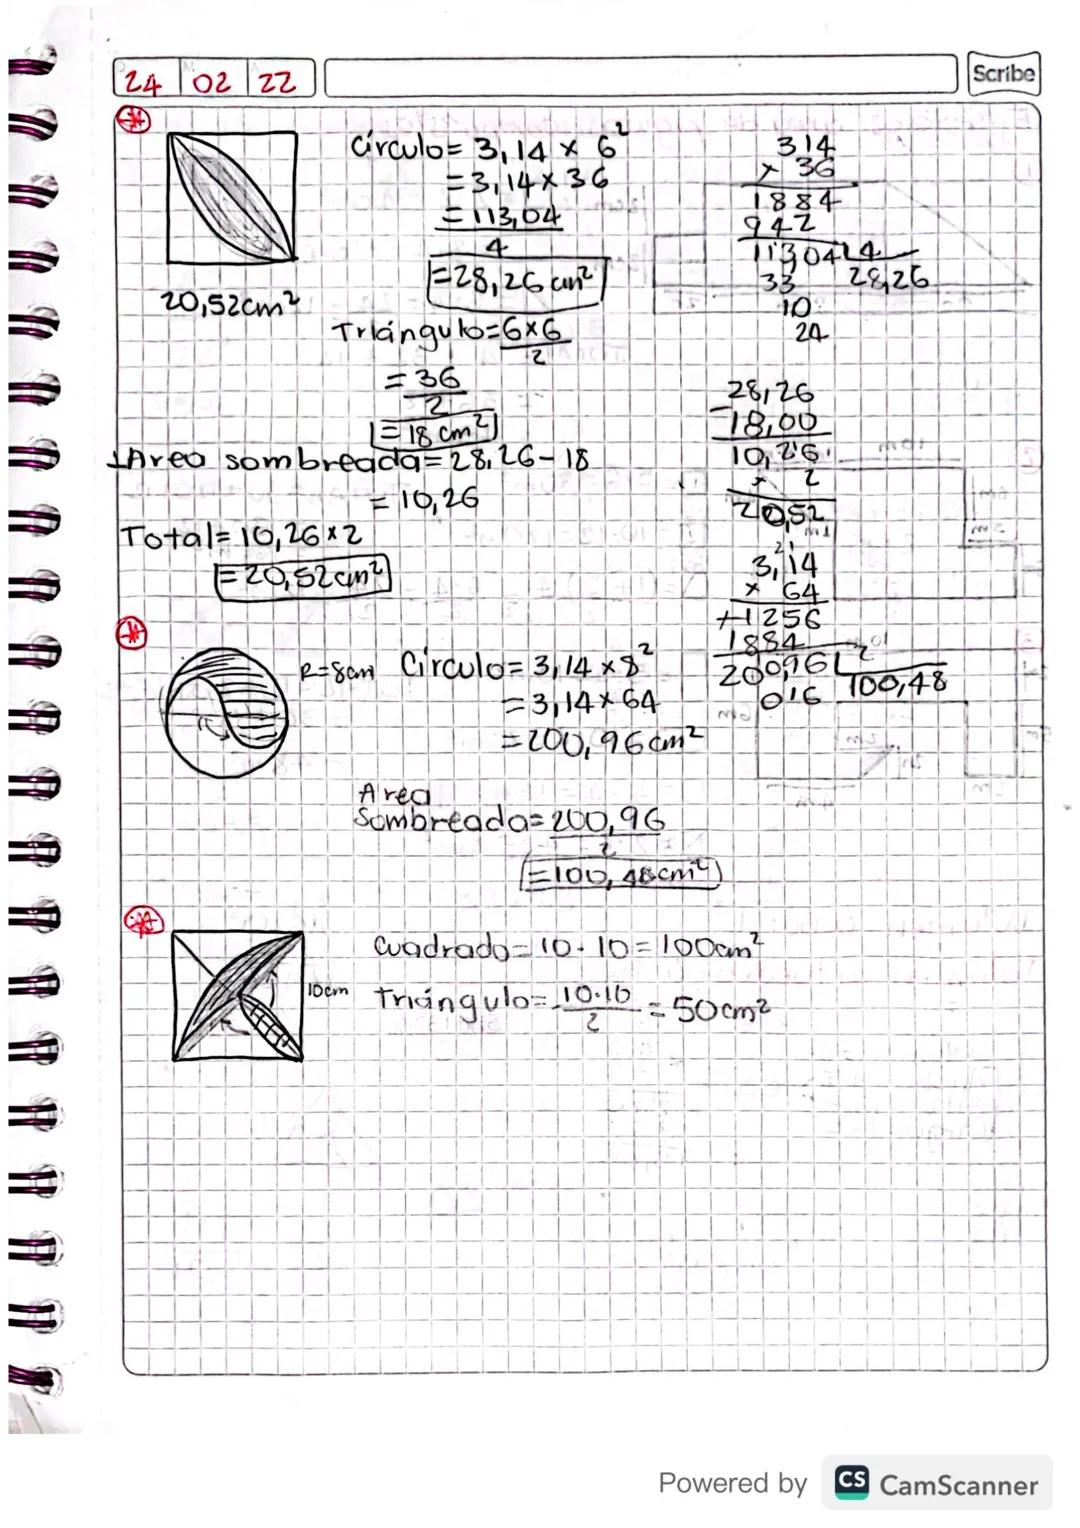 24 02 22
Scribe
Círculo= 3,14 × 6²
= 3,14 × 36
= 113,04
4
= 28,26 cm²
20,52cm²
Triángulo= 6×6
2
= 36
2
= 18 cm²
1Area sombreada= 28,26 - 18
= 10,26
Total= 10,26 × 2
= 20,52 cm²
314
× 36
1884
942
11304 4
33 28,26
10
24
28,26
- 18,00
10,26
× 2
20,52
2 1
3,14
× 64
+1256
1884
20096 2
016 100,48
R=8cm
Círculo= 3,14 × 8²
= 3,14 × 64
= 200,96 cm²
Area
Sombreada= 200,96
2
= 100,48cm²
10cm
Cuadrado= 10 · 10 = 100cm²
Triángulo= 10·10 = 50cm²
2
Powered by CS CamScanner